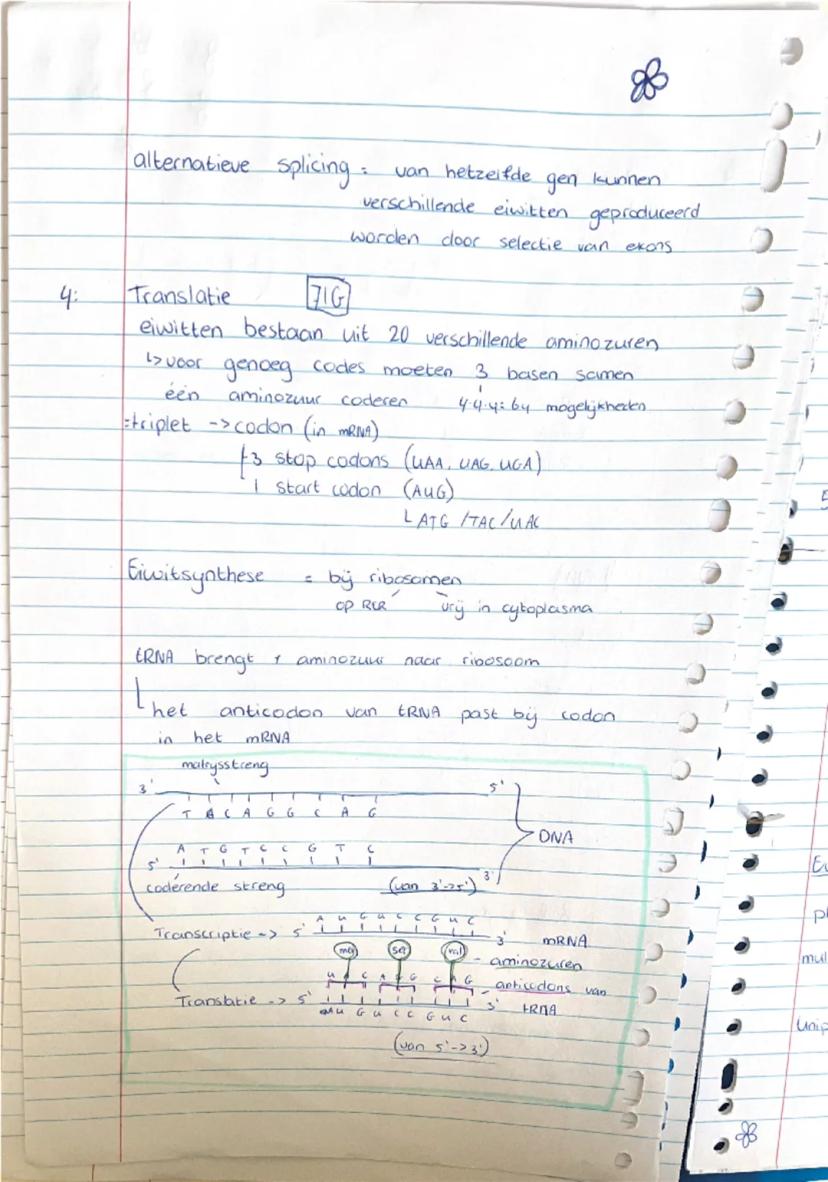 alternatieve splicing = van hetzelfde gen kunnen
verschillende eiwitten geproduceerd
worden door selectie van exons
4: Translatie 71G
eiwitten bestaan uit 20 verschillende aminozuren
↳ voor genoeg codes moeten 3 basen samen
één aminozuur coderen 4·4·4 = 64 mogelijkheden
=triplet -> codon (in mRNA)
3 stop codons (UAA, UAG, UGA)
1 start codon (AUG)
ATG /TAC/UAC
Eiwitsynthese = bij ribosomen
op RER vrij in cytoplasma
tRNA brengt 1 aminozuur naar ribosoom
het anticodon van tRNA past bij codon
in het mRNA
matrysstreng
3' 5'
T A C A G G C A G
DNA
A T G T C C G T C
5' 3'
coderende streng (van 3'->5')
A U G U C C G U C
Transcriptie -> 5' 3' mRNA
met ser val - aminozuren
U A C A G G C A G - anticodons van
Translatie -> 5' 3' tRNA
A U G U C C G U C
(van 5'->3')
Ei
pl
mul
Unip